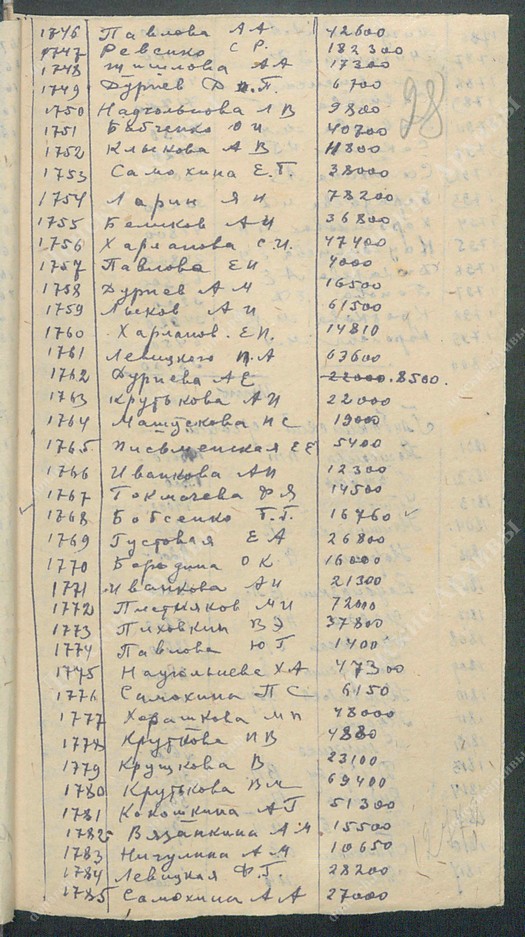 1746 Павлова А А 42600
1747 Ревенко С Р. 182300
1748 Шишлова А А 17300
1749 Дуриев Ф П. 6700
28
1750 Наугольнова Л В 9800
1751 Бабченко О И 40700
1752 Клыкова А В 11800
1753 Самохина Е.Г. 38000
1754 Ларин Я И 78200
1755 Беликов А И 36800
1756 Харламова С.И. 47400
1757 Павлова Е И 4000
1758 Дуриев А М 16500
1759 Лысков А И 61500
1760 Харламов. Е П. 14810
1761 Левицкого П. А 63600
1762 Дуриева А Е 22000. 8500.
1763 Крутькова А И 22000
1764 Машускова П С 19000
1765 Письменская Е Е 5400
1766 Иванкова А П 12300
1767 Токмачева Ф Я 14500
1768 Бобсенко Г.Г. 16760
1769 Густовая Е А 26800
1770 Бородина О К. 16000
1771 Иванкова А И 21300
1772 Плетняков М И 72000
1773 Пиховкин В Э 37800
1774 Павлова Ю Г 1400
1775 Наугольнева Х А 47300
1776 Самохина П С 6150
1777 Хорашкова М П 48000
1778 Круткова П В 4880
1779 Крущкова В 23100
1780 Крутькова В М 69400
1781 Кокошкина А Г 51300
1782 Вязанкина А М 15500
1783 Нигулина А М 10650
1784 Левицкая Ф.Г. 28200
1785 Самохина А А 27000